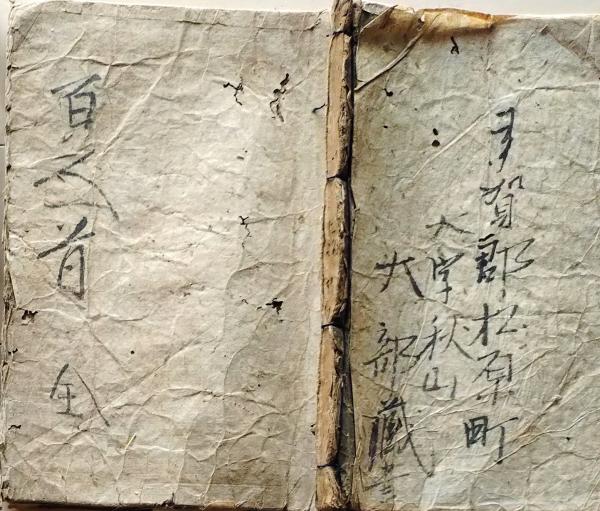 多賀郡松原町
大字秋山
大部藏書
百人一首 全